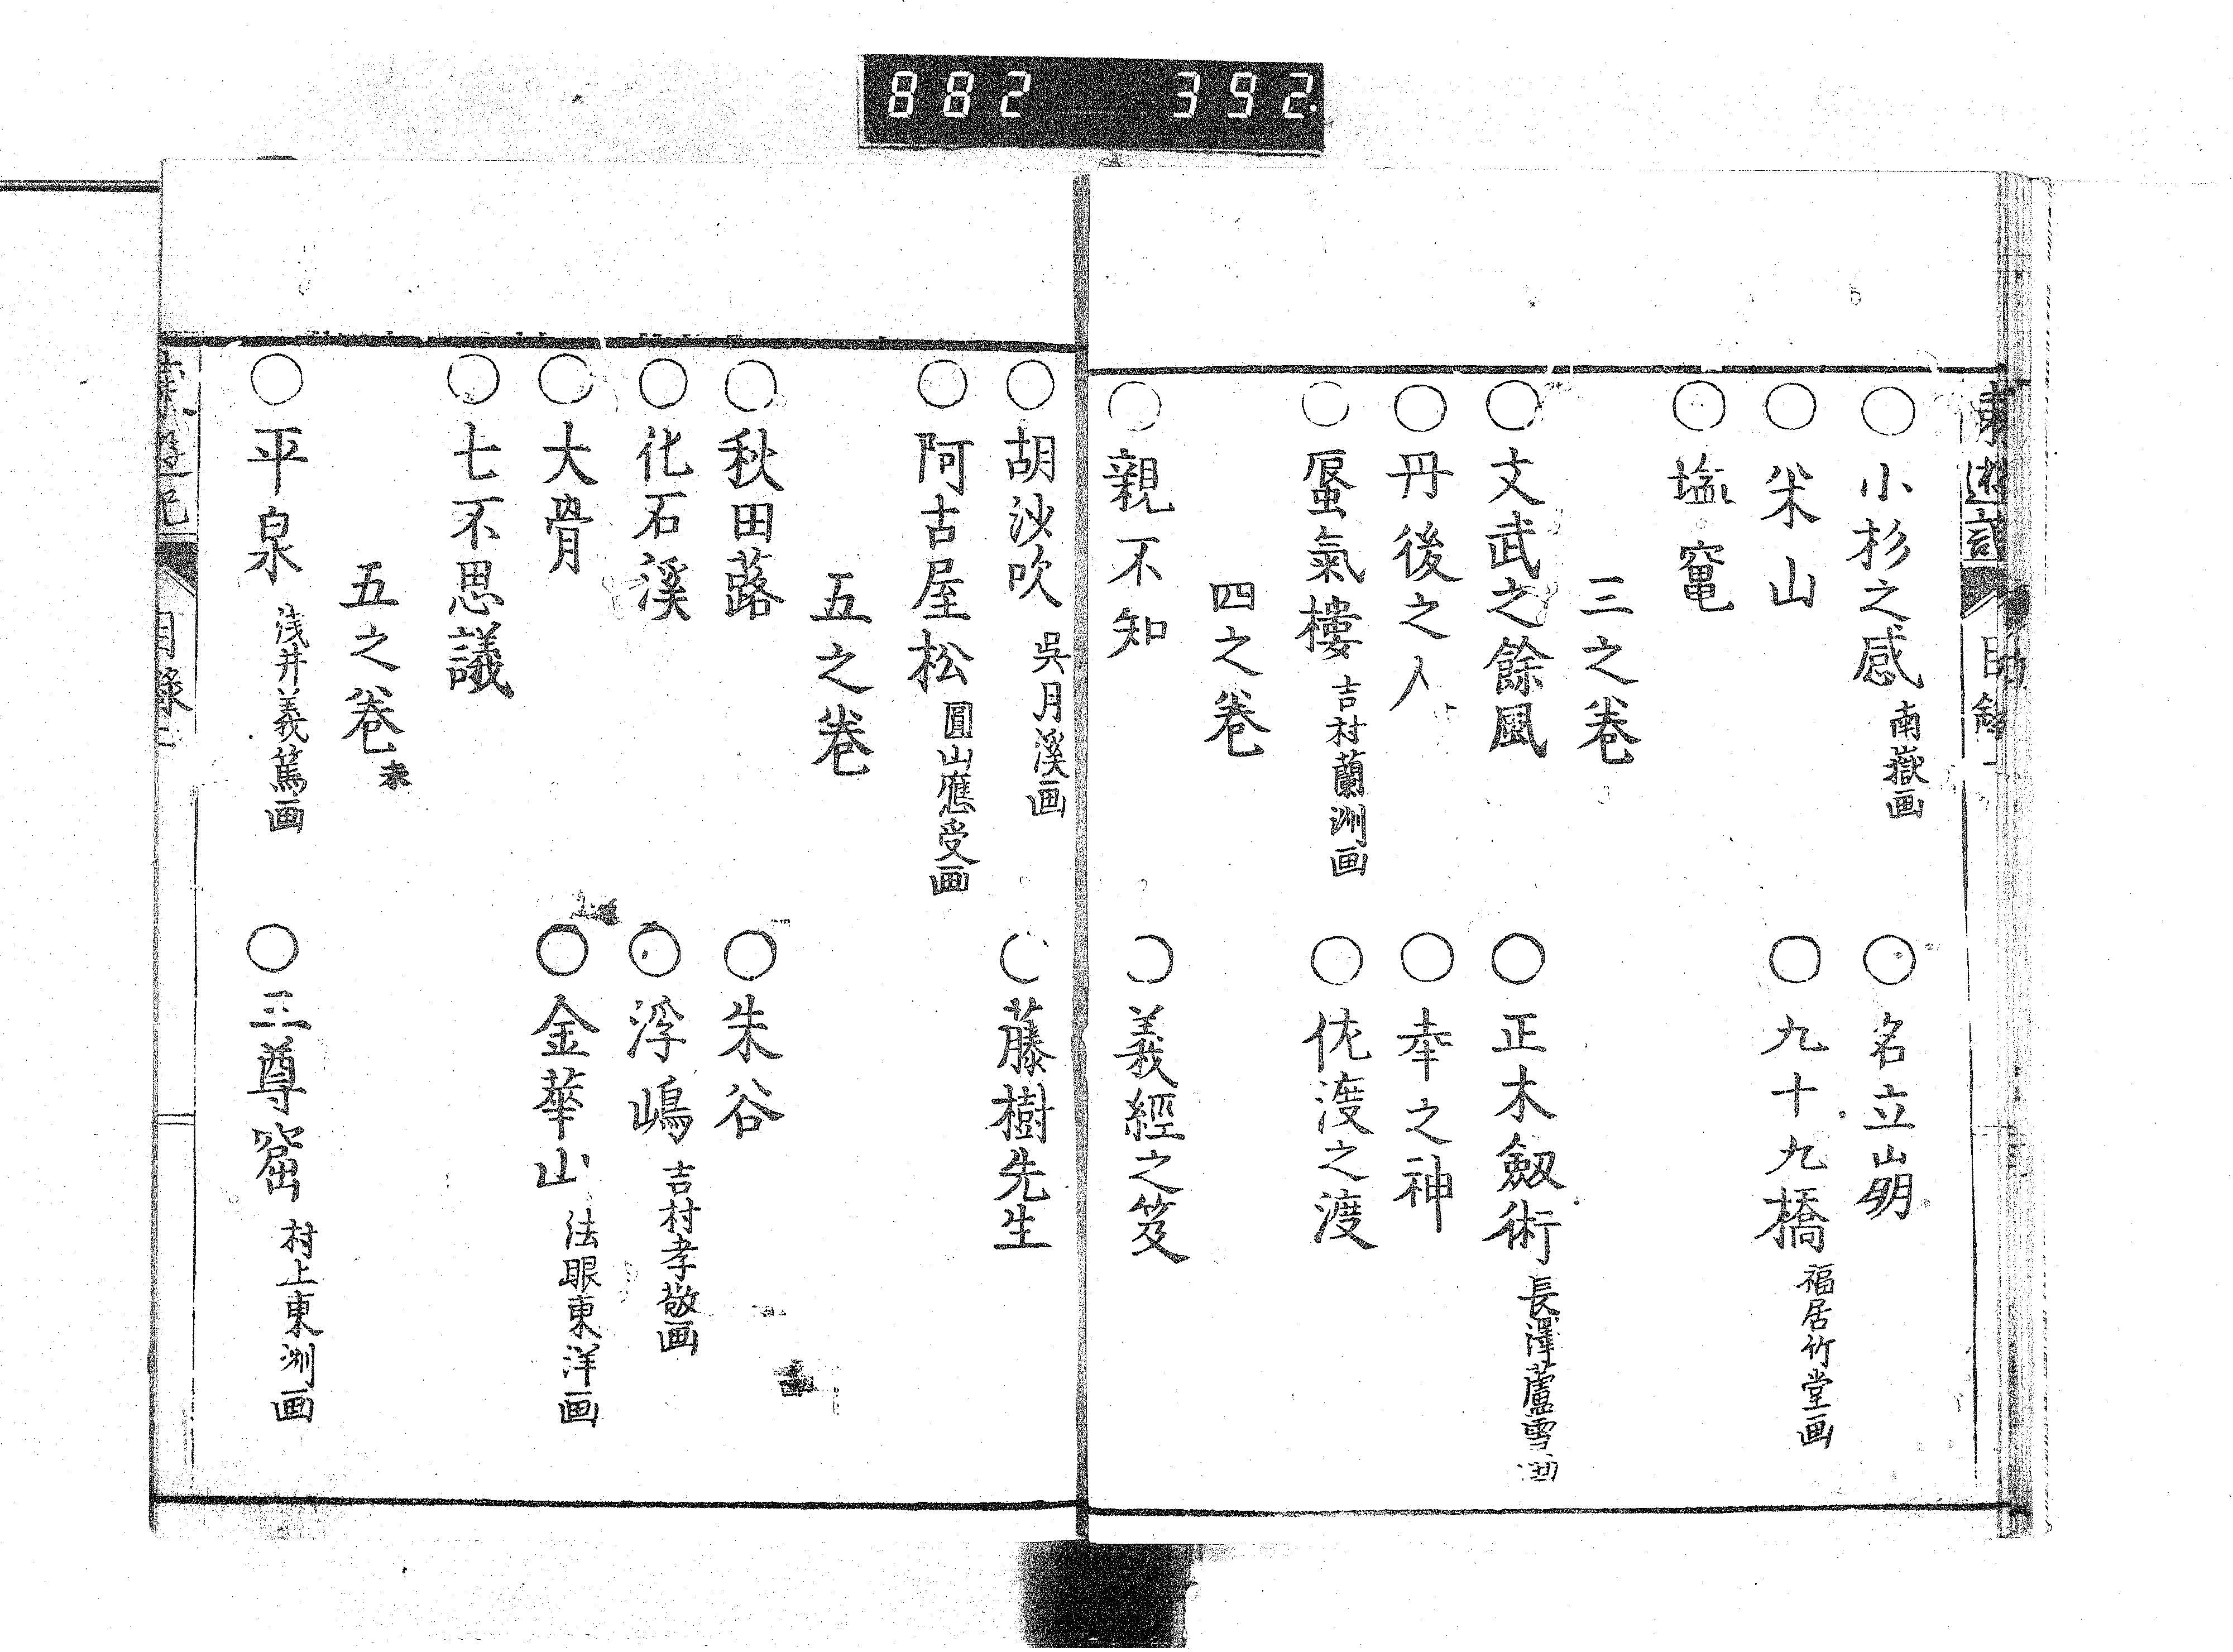 882 392.
東遊記 目録一
○小杉之感 南嶽画 ○名立崩
○米山 ○九十九橋 福居竹堂画
○塩竃
三之巻
○文武之餘風 ○正木劔術 長澤蘆雪画
○丹後之人 ○幸之神
○蜃氣樓 吉村蘭洲画 ○佐渡之渡
四之巻
○親不知 ○義經之笈
○胡沙吹 呉月溪画 ○藤樹先生
○阿古屋松 圓山應受画
五之巻
○秋田蕗 ○朱谷
○化石溪 ○浮嶋 吉村孝敬画
○大骨 ○金華山 法眼東洋画
○七不思議
五之巻末
○平泉 浅井義篤画 ○三尊窟 村上東洲画
東遊記 目録二